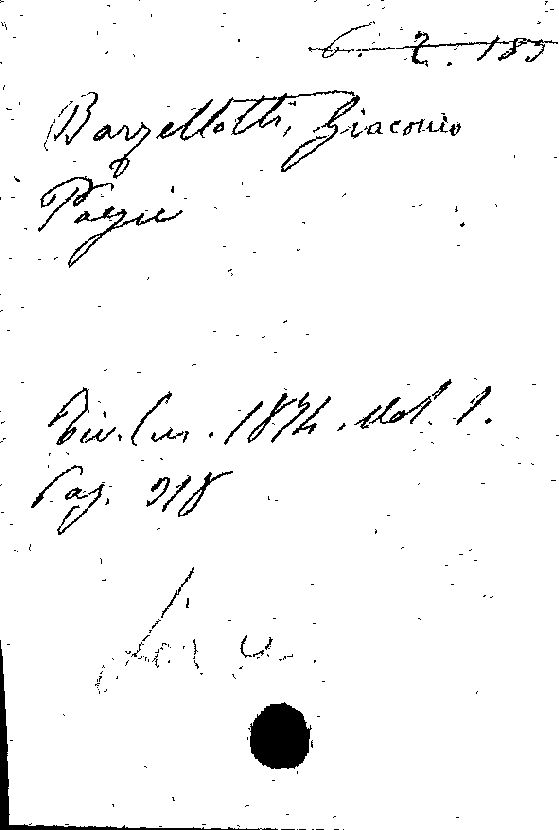 6. 2. 183
Barzellotti, Giacomo
Poesie
1874. Vol. 1.
Pag. 318